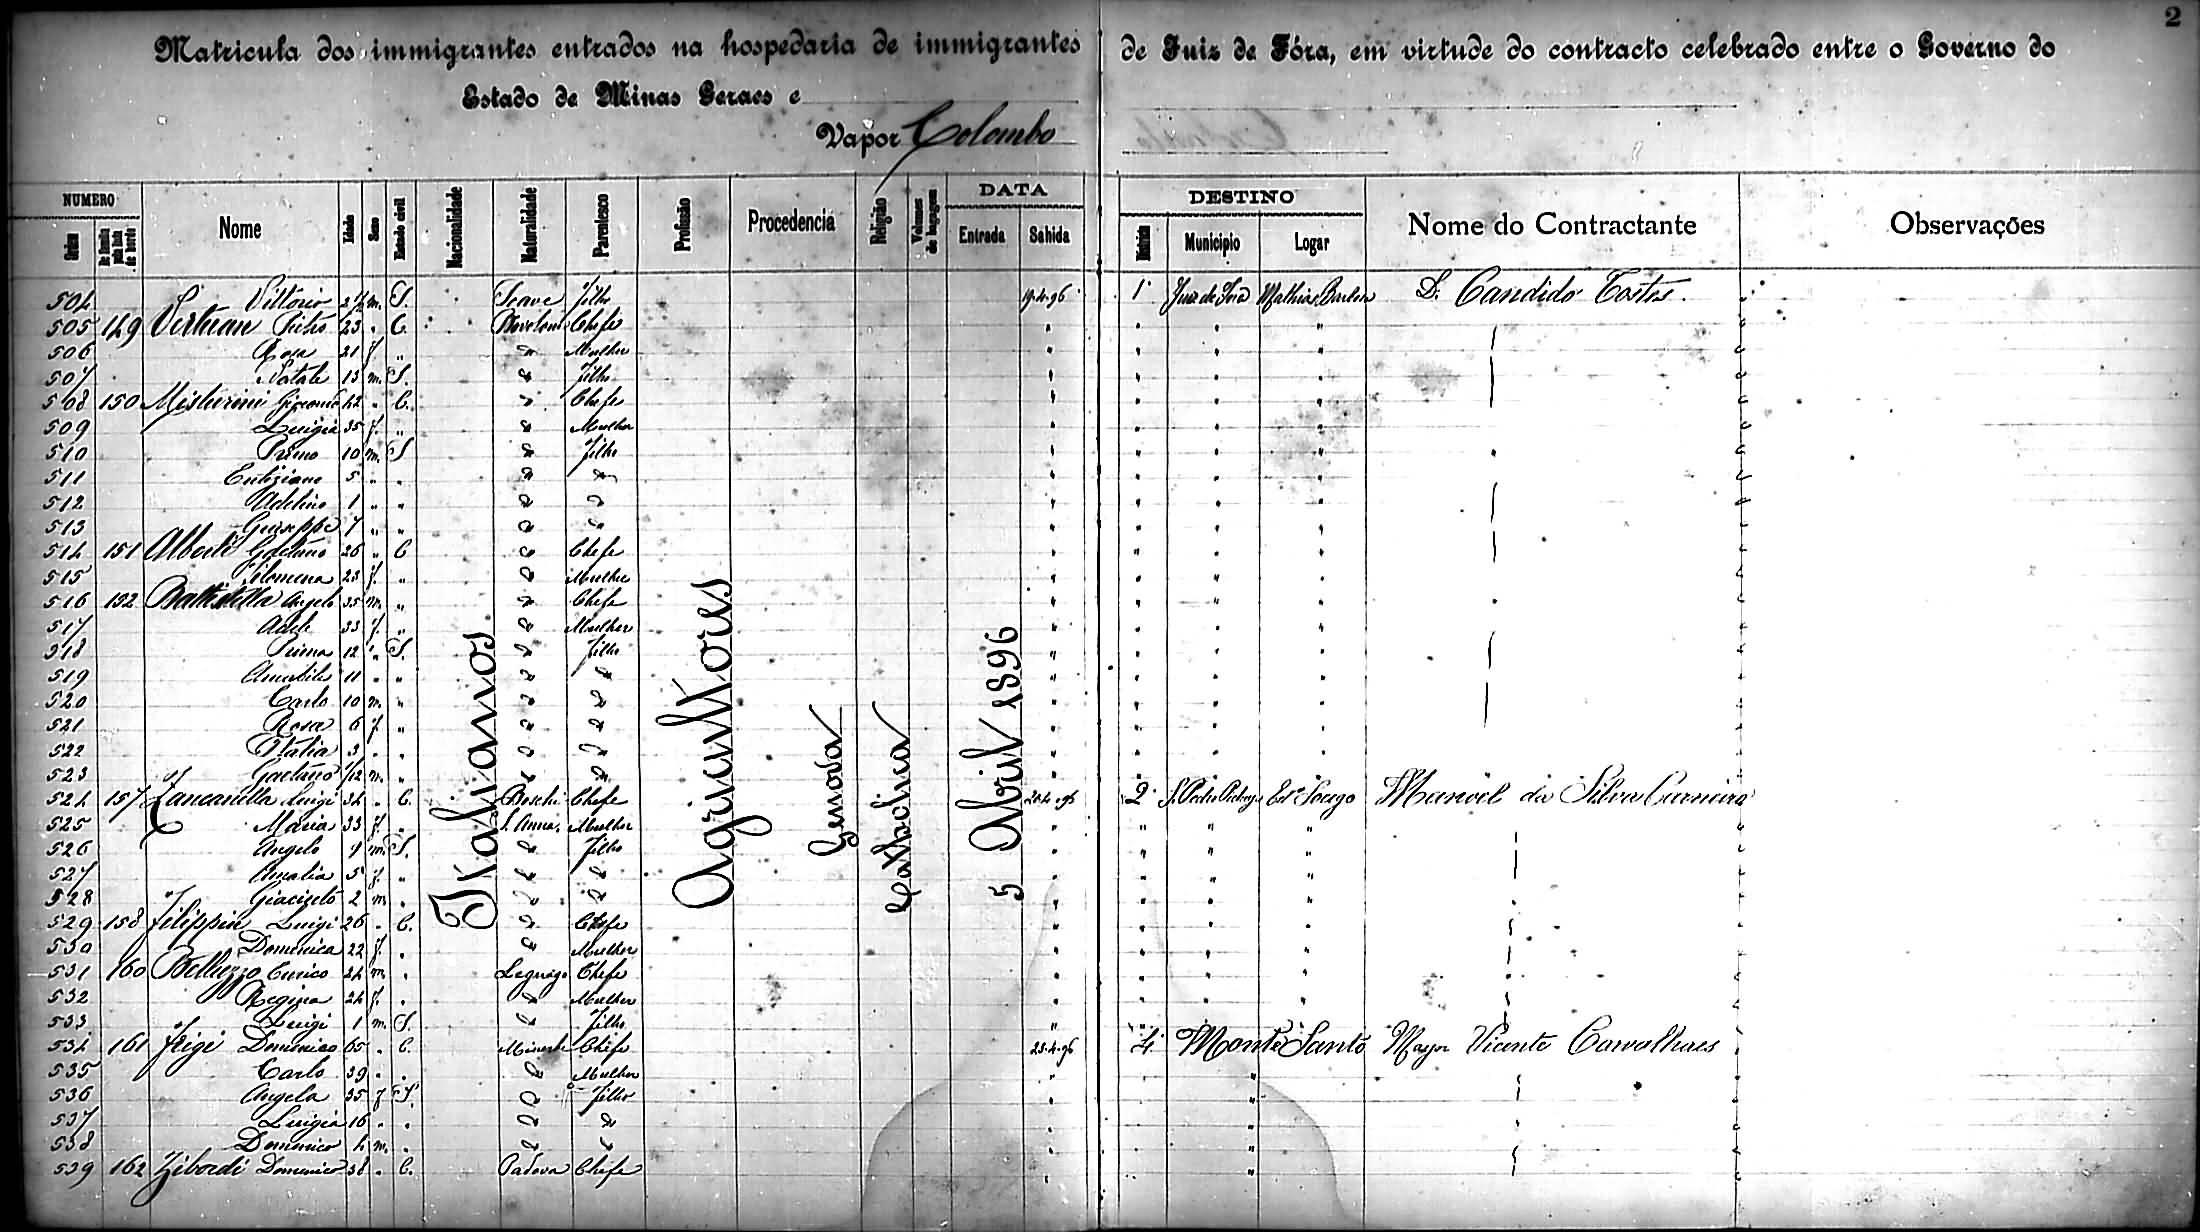 2
Matricula dos immigrantes entrados na hospedaria de immigrantes de Juiz de Fóra, em virtude do contracto celebrado entre o Governo do
Estado de Minas Geraes e
Vapor Colombo
NUMERO Nome Idade Sexo Estado civil Nacionalidade Naturalidade Parentesco Profissão Procedencia Religião Volumes de bagagem DATA DESTINO Nome do Contractante Observações
Ordem Entrada Sahida Municipio Logar
Italianos Agricultores Genova Catholica 5 Abril 1896
504 Vittorio m. S. Soave filho 19-4-96 1 Juiz de Fora Mathias Barbosa Dr. Candido Tostes.
505 149 Pietro 23 " C. Chefe "
506 Rosa 21 f. " " Mulher "
507 Natale 13 m. S. " filho "
508 150 Misturini Giacomo 42 " C. " Chefe "
509 Luigia 35 f. " " Mulher "
510 Primo 10 m. S " filho "
511 5 " " " "
512 Adelino 1 " " " "
513 Giuseppe 7 " " " "
514 151 Alberti Gaetano 26 " C " Chefe "
515 Filomena 23 f. " " Mulher "
516 152 Battistella Angelo 35 m. " " Chefe "
517 Adele 33 f. " " Mulher "
518 Prima 12 " S. " filho "
519 Amabile 11 " " " "
520 Carlo 10 m. " " "
521 Rosa 6 f. " " "
522 Italia 3 " " " "
523 Gaetano m. " " "
524 157 Zancanella Luigi 34 " C. Boschi Chefe 20-4-96 2 Manoel da Silva Carneiro
525 Maria 33 f. " S. Anna. Mulher "
526 Angelo m. S. " filho "
527 Amalia 5 f. " " "
528 Giacinto 2 m. " " "
529 158 Filippin Luigi 26 " C. " Chefe "
530 Domenica 22 f. " " Mulher "
531 160 Belluzzo Enrico 24 m. " Legnago Chefe "
532 Regina 24 f. " " Mulher "
533 Luigi 1 m. S. " filho "
534 161 Domenico 65 " C. Chefe 23-4-96 4 Monte Santo Major Vicente Carvalhaes
535 Carlo 39 " " " Mulher "
536 Angela 35 f S. " filho "
537 Luigia 16 " " " "
538 Domenico 4 m. " " "
539 162 Zibordi Domenico 38 " C. Padova Chefe "